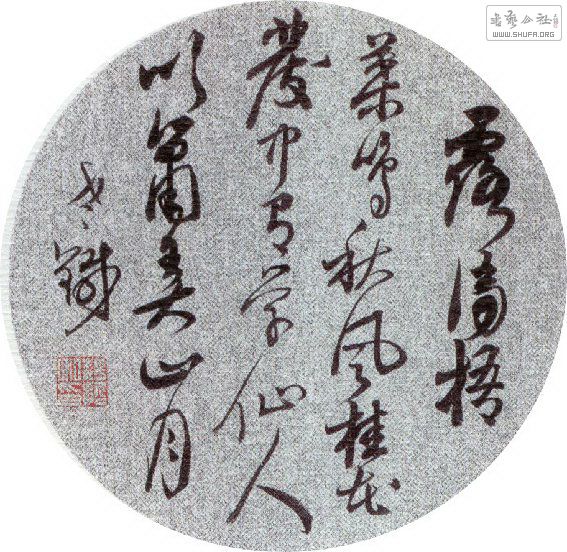 露滴梧
葉鳴秋風桂花
發中有學仙人
吹簫弄山月
老鐵
书艺公社
WWW.SHUFA.ORG